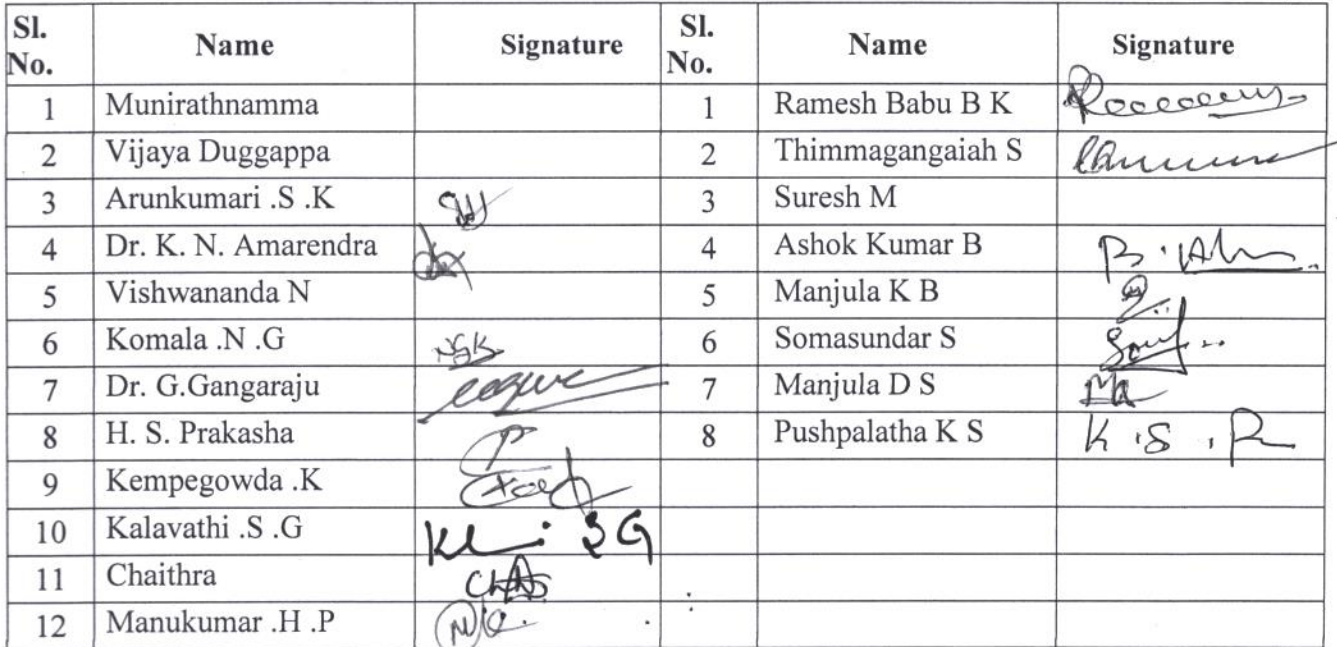 Sl. No. Name Signature Sl. No. Name Signature
1 Munirathnamma 1 Ramesh Babu B K
2 Vijaya Duggappa 2 Thimmagangaiah S
3 Arunkumari .S .K 3 Suresh M
4 Dr. K. N. Amarendra 4 Ashok Kumar B
5 Vishwananda N 5 Manjula K B
6 Komala .N .G NGK 6 Somasundar S
7 Dr. G.Gangaraju 7 Manjula D S
8 H. S. Prakasha 8 Pushpalatha K S K .S .P
9 Kempegowda .K
10 Kalavathi .S .G
11 Chaithra
12 Manukumar .H .P